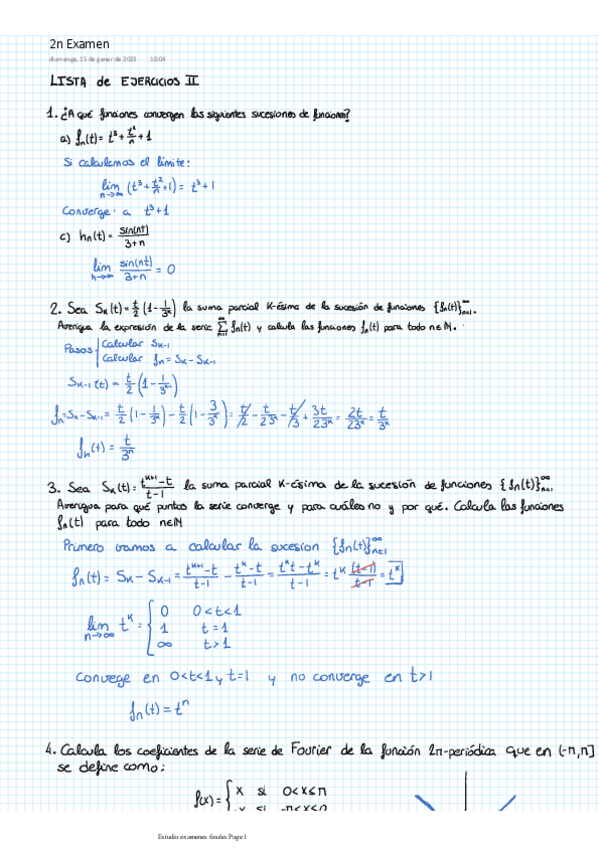 2n Examen
diumenge, 15 de gener de 2023 10:04
LISTA de EJERCICIOS II
1. ¿A qué funciones convergen las siguientes sucesiones de funciones?
a) fn(t) = t³ + t²/n + 1
Si calculamos el límite:
lim n→∞ (t³ + t²/n + 1) = t³ + 1
Converge a t³+1
c) hn(t) = sin(nt)/(3+n)
lim n→∞ sin(nt)/(3+n) = 0
2. Sea Sk(t) = t/2 (1 - 1/3ᵏ) la suma parcial K-ésima de la sucesión de funciones {fn(t)}∞n=1.
Averigua la expresión de la serie ∑∞n=1 fn(t) y calcula las funciones fn(t) para todo n∈ℕ.
Pasos | Calcular Sk-1
Calcular fn = Sk - Sk-1
Sk-1(t) = t/2 (1 - 1/3ᵏ⁻¹)
fn = Sk - Sk-1 = t/2 (1 - 1/3ᵏ) - t/2 (1 - 3/3ᵏ) = t/2 - t/2·3ᵏ - t/2 + 3t/2·3ᵏ = 2t/2·3ᵏ = t/3ᵏ
fn(t) = t/3ⁿ
3. Sea Sk(t) = (tᵏ⁺¹ - t)/(t-1) la suma parcial K-ésima de la sucesión de funciones {fn(t)}∞n=1.
Averigua para qué puntos la serie converge y para cuáles no y por qué. Calcula las funciones
fn(t) para todo n∈ℕ
Primero vamos a calcular la sucesion {fn(t)}∞n=1
fn(t) = Sk - Sk-1 = (tᵏ⁺¹ - t)/(t-1) - (tᵏ - t)/(t-1) = (tᵏt - tᵏ)/(t-1) = tᵏ (t-1)/(t-1) = tᵏ
lim n→∞ tᵏ = { 0 0<t<1
1 t=1
∞ t>1
Convege en 0<t<1 y t=1 y no converge en t>1
fn(t) = tⁿ
4. Calcula los coeficientes de la serie de Fourier de la función 2π-periódica que en (-π,π]
se define como:
f(x) = { x si 0<x≤π
-x si -π<x≤0
Estudio examenes finales Page 1